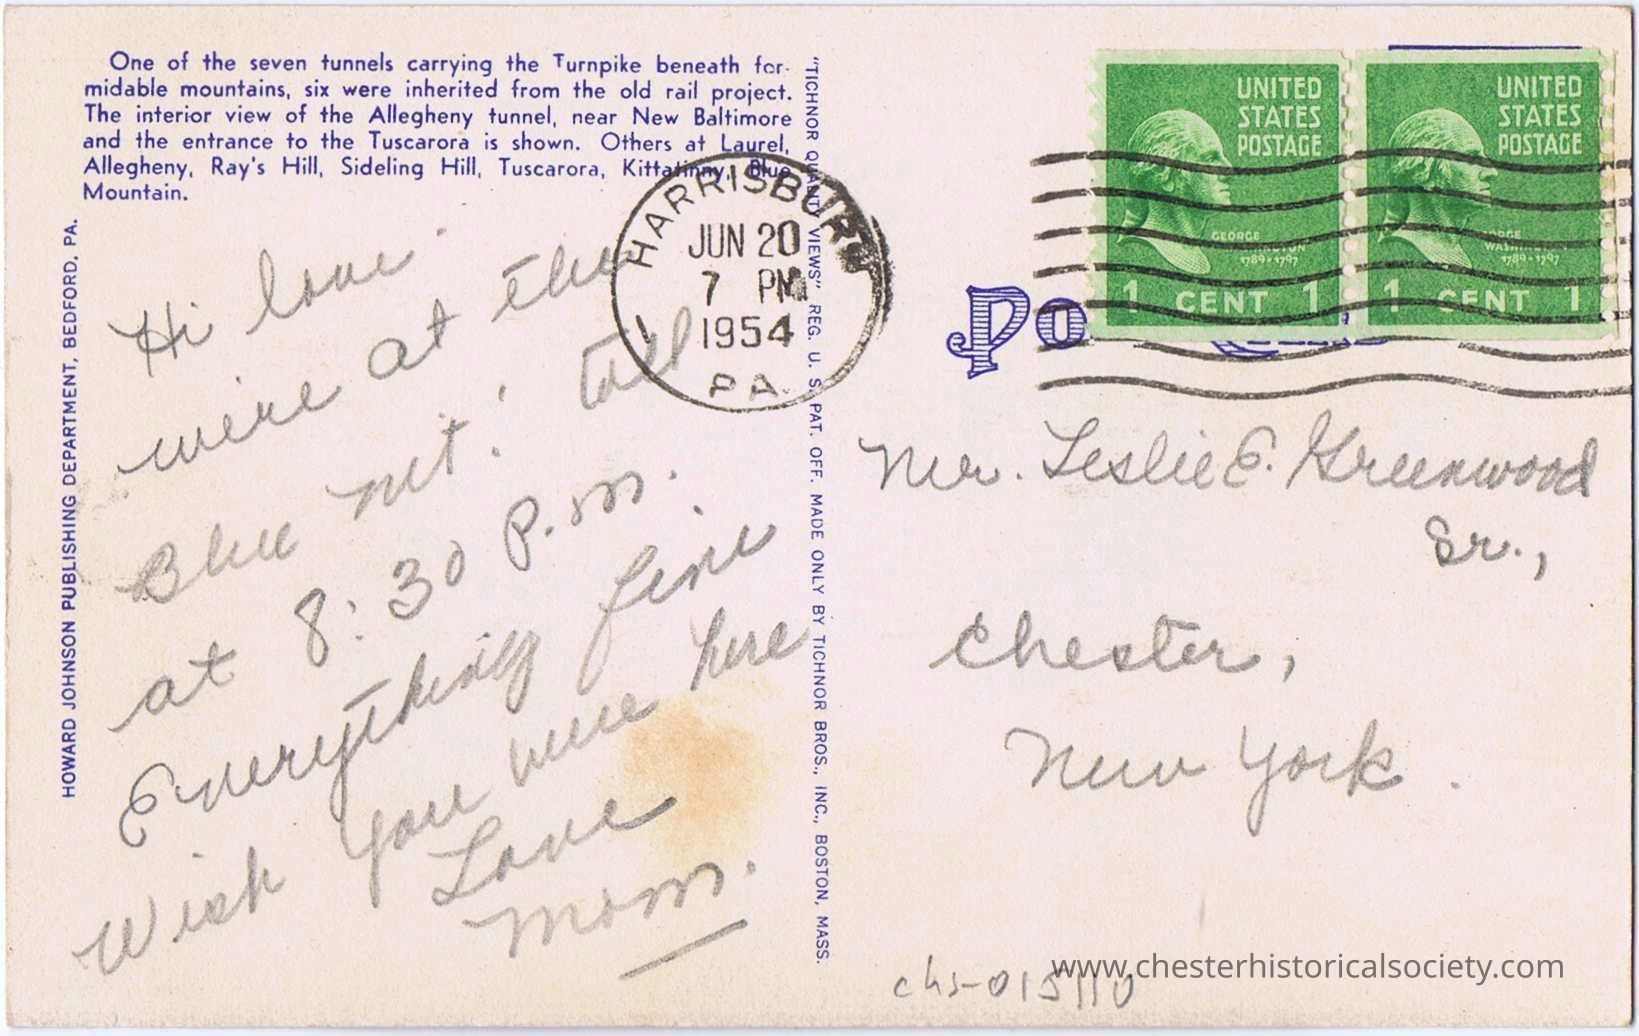 One of the seven tunnels carrying the Turnpike beneath for-
midable mountains, six were inherited from the old rail project.
The interior view of the Allegheny tunnel, near New Baltimore
and the entrance to the Tuscarora is shown. Others at Laurel,
Allegheny, Ray's Hill, Sideling Hill, Tuscarora, Kittatinny, Blue
Mountain.
HOWARD JOHNSON PUBLISHING DEPARTMENT, BEDFORD, PA.
Hi love
were at the
Blue mt.
at 8:30 P.M.
Everything fine
Wish you were here
Love
Mom.
"TICHNOR QUALITY VIEWS" REG. U. S. PAT. OFF. MADE ONLY BY TICHNOR BROS., INC., BOSTON, MASS.
HARRISBURG
JUN 20
7 PM
1954
PA.
UNITED
STATES
POSTAGE
GEORGE
WASHINGTON
1789-1797
1 CENT 1
UNITED
STATES
POSTAGE
GEORGE
WASHINGTON
1789-1797
1 CENT 1
Po
Mr. Leslie E. Greenwood
Sr.,
Chester,
New York.
chs-015110
www.chesterhistoricalsociety.com